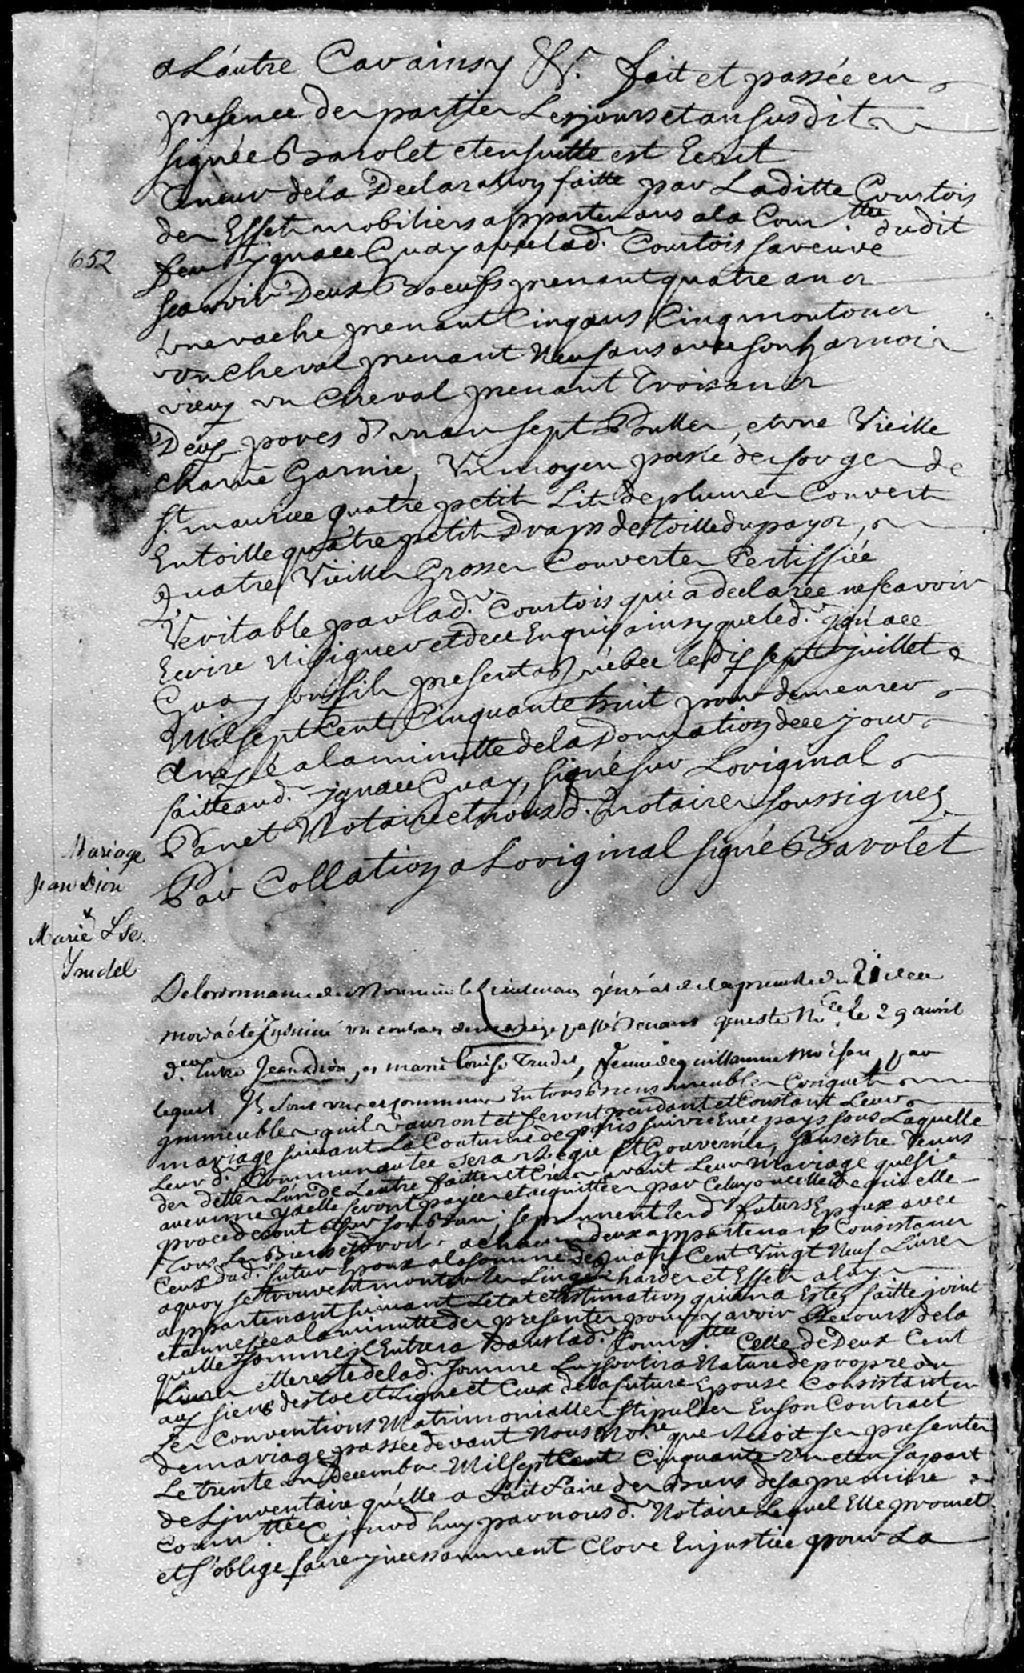 a L'autre Cavainsy &c. fait et passée en
presence des parties Les jours et an susdit
signée Barolet et ensuitte est Ecrit
Teneur dela Declaration faitte par Laditte Courtois
des Effets mobiliers appartenans ala Com.tté dudit
feu ignace Guay avec lad. Courtois sa veuve
652
Scavoir Deux Boeufs prenant quatre ans
une vache prenant Cinq ans Cinq moutons
un Cheval prenant Neuf ans avec son harnois
vieux un Cheval prenant Trois ans
Deux porcs d'un an sept Bulles, et une Vieille
charue Garnie, Un moyen poesle des forges de
St. maurice quatre petits Lits de plumes Couvert
En toille quatre petits draps de toille du payis,
quatre Vieilles Grosses Couvertes Certiffiée
Veritable par lad. Courtois qui a declarée ne scavoir
Ecrire Ni signer et de ce Enquis ainsy que led. ignace
Guay son fils present a Quebec le dix sept juillet
Mil sept Cent Cinquante huit pour demeurer
anexé a la minutte de la Donnation de ce jour
faitte aud. ignace Guay, signé sur Loriginal
Panet Notaire et nous d. Notaire soussignez
Par Collation a Loriginal signé Barolet
Mariage
Jean Dion
&
Marie Lse.
Trudel
De lordonnance de Monsieur le Lieutenant général de la prevosté du 21 de ce
mois a été insinué un contrat de mariage passé devant Me. le 29 avril
d.er Entre Jean Dion, et marie Louise Trudel, veuve de guillaume Moisan, par
lequel Ils sont uns et communs En tous Biens meubles Conquets
immeubles qu'ils auront et feront pendant et Constant Leur
mariage suivant La Coutume de paris suivie En ce pays sous Laquelle
Leur d. Communautée sera Régie Et Gouvernée, sans estre Tenus
des dettes L'un de L'autre faittes et Créées avant Leur Mariage quelsi
aucunne y a elle seront payée et acquittées par Celuy ou celle de qui elle
procederont et sur son Bien; se prennent lesd. futurs Epoux avec
Tous les Biens et droits a chacun deux appartenans Consistans
Ceux dud. futur Epoux a la somme de quatre Cent Vingt Neuf Livres
a quoy se trouvent monter les Linges hardes et Effets a luy
appartenant suivant L'état et Estimation qui en a Estée faitte joint
et annexée a la minutte des presentes pour y avoir Recours de la
quelle sommes Entrera Dans lad. Com.tté Celle de Deux Cent
Livres et le reste de lad. somme Luy sortira Nature de propre ou
aux siens destoc et Ligne et Ceux de la future Epouse Consistant en
Les Conventions Matrimonialles stipulées En son Contract
de mariage passée devant Nous No.re que
Le trente un Decembre Mil sept Cent Cinquante un et en sa part
de L'inventaire qu'elle a fait faire des Biens de sa premiere
Com.tté Cejourd'huy par nous d. Notaire Lequel Elle promet
et s'oblige faire incessamment Clore En justice pour La